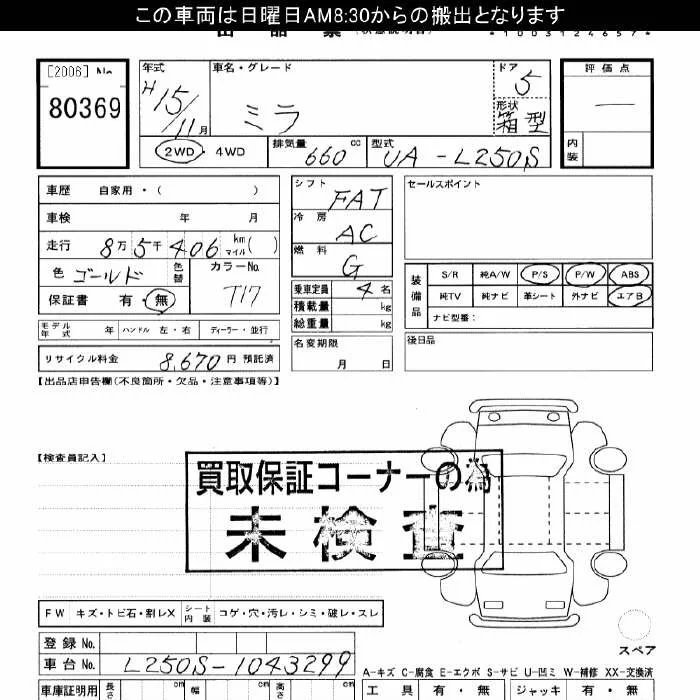 この車両は日曜日AM8:30からの搬出となります
*1003124657*
[2006] No
80369
年式
H15/11月
車名・グレード
ミラ
ドア
5
形状
箱型
評価点
—
内装
2WD・4WD
排気量
660 cc
型式
UA-L250S
車歴 自家用・( )
車検 年 月
走行 8万5千406 km マイル( )
色 ゴールド 色替 カラーNo. T17
保証書 有・無
モデル年式 年 ハンドル 左・右 ディーラー・並行
リサイクル料金 8,670円 預託済
シフト FAT
冷房 AC
燃料 G
乗車定員 4名
積載量 kg
総重量 kg
名変期限
月 日
セールスポイント
装備品
S/R 純A/W P/S P/W ABS
純TV 純ナビ 革シート 外ナビ エアB
ナビ型番:
後日品
【出品店申告欄(不良箇所・欠品・注意事項等)】
【検査員記入】
買取保証コーナーの為
未検査
FW キズ・トビ石・割レX シート内装 コゲ・穴・汚レ・シミ・破レ・スレ
登録No.
車台No. L250S-1043299
車庫証明用 長さ cm 幅 cm 高さ cm
スペア
A-キズ C-腐食 E-エクボ S-サビ U-凹ミ W-補修 XX-交換済
工具 有・無 ジャッキ 有・無